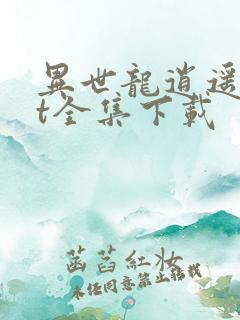 異世龍逍遥
t全集下載
菡萏紅妝
未經同意禁止轉載